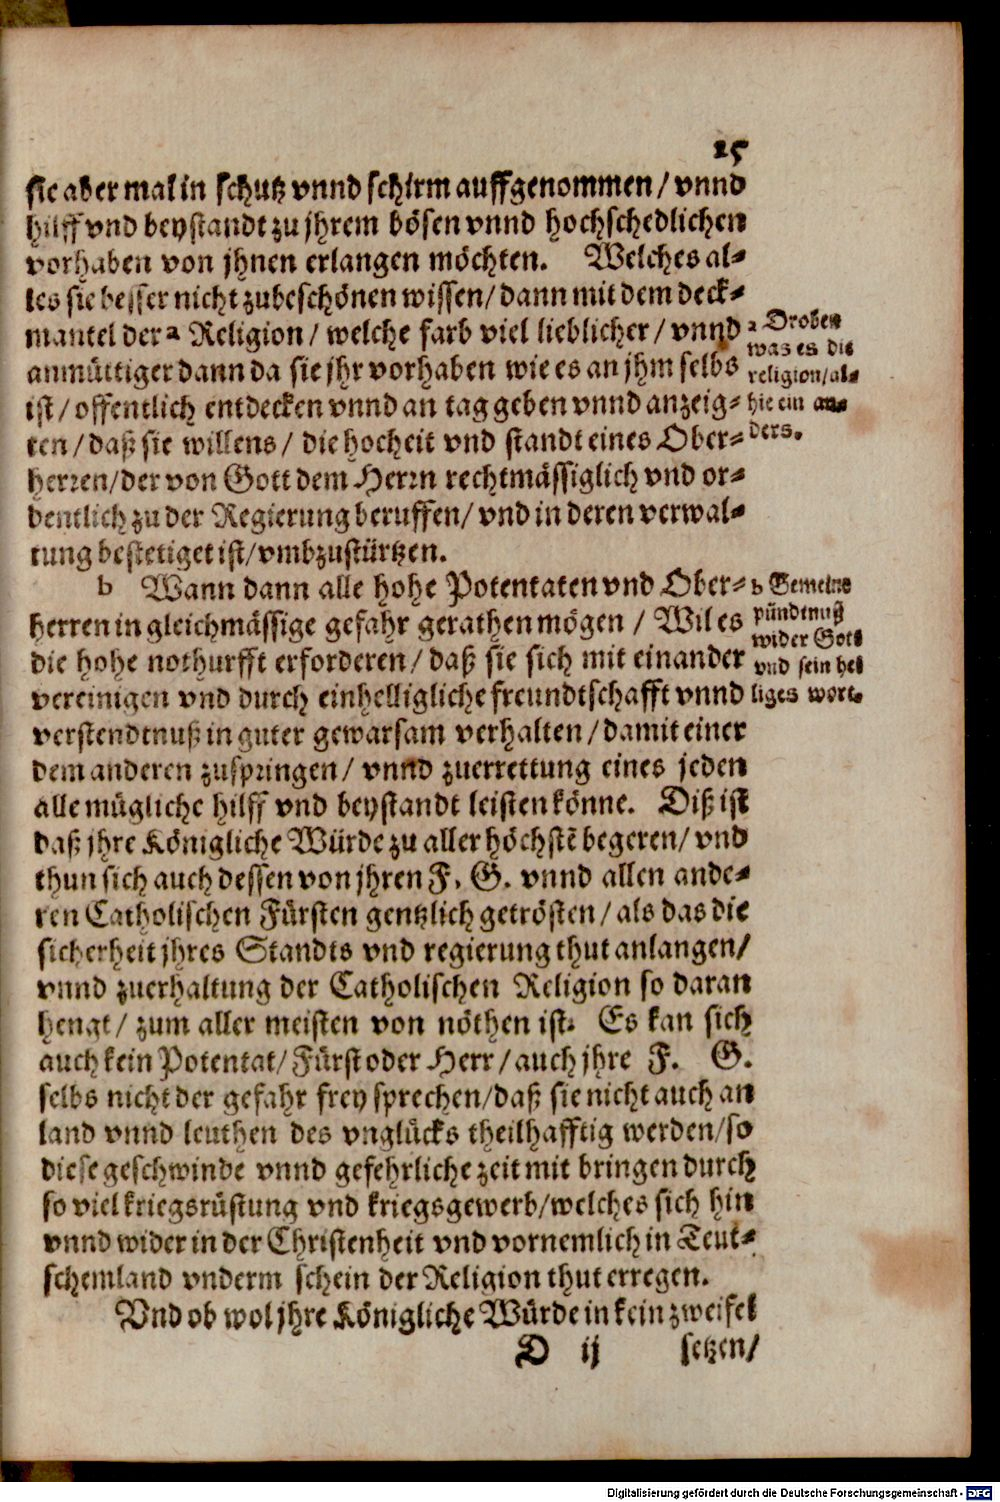 15
sie aber mal in schutz vnnd schirm auffgenommen / vnnd
hilff vnd beystandt zu jhrem bösen vnnd hochschedlichen
vorhaben von jhnen erlangen möchten. Welches al-
les sie besser nicht zubeschönen wissen / dann mit dem deck-
mantel der a Religion / welche farb viel lieblicher / vnnd
anmüttiger dann da sie jhr vorhaben wie es an jhm selbs
ist / offentlich entdecken vnnd an tag geben vnnd anzeig-
ten / daß sie willens / die hocheit vnd standt eines Ober-
herren / der von Gott dem Herrn rechtmässiglich vnd or-
dentlich zu der Regierung beruffen / vnd in deren verwal-
tung bestetiget ist / vmbzustürtzen.
a Droben
was es die
religion / al-
hie ein an-
ders.
b Wann dann alle hohe Potentaten vnd Ober-
herren in gleichmässige gefahr gerathen mögen / Wil es
die hohe nothurfft erforderen / daß sie sich mit einander
vereinigen vnd durch einhelligliche freundtschafft vnnd
verstendtnuß in guter gewarsam verhalten / damit einer
dem anderen zuspringen / vnnd zuerrettung eines jeden
alle mügliche hilff vnd beystandt leisten könne. Diß ist
daß jhre Königliche Würde zu aller höchstẽ begeren / vnd
thun sich auch dessen von jhren F. G. vnnd allen ande-
ren Catholischen Fürsten gentzlich getrösten / als das die
sicherheit jhres Standts vnd regierung thut anlangen /
vnnd zuerhaltung der Catholischen Religion so daran
hengt / zum aller meisten von nöthen ist. Es kan sich
auch kein Potentat / Fürst oder Herr / auch jhre F. G.
selbs nicht der gefahr frey sprechen / daß sie nicht auch an
land vnnd leuthen des vnglücks theilhafftig werden / so
diese geschwinde vnnd gefehrliche zeit mit bringen durch
so viel kriegsrüstung vnd kriegsgewerb / welches sich hin
vnnd wider in der Christenheit vnd vornemlich in Teut-
schemland vnderm schein der Religion thut erregen.
b Gemeine
pündtnuß
wider Gott
vnd sein hei
liges wort.
Vnd ob wol jhre Königliche Würde in kein zweifel
D ij setzen /
Digitalisierung gefördert durch die Deutsche Forschungsgemeinschaft - DFG